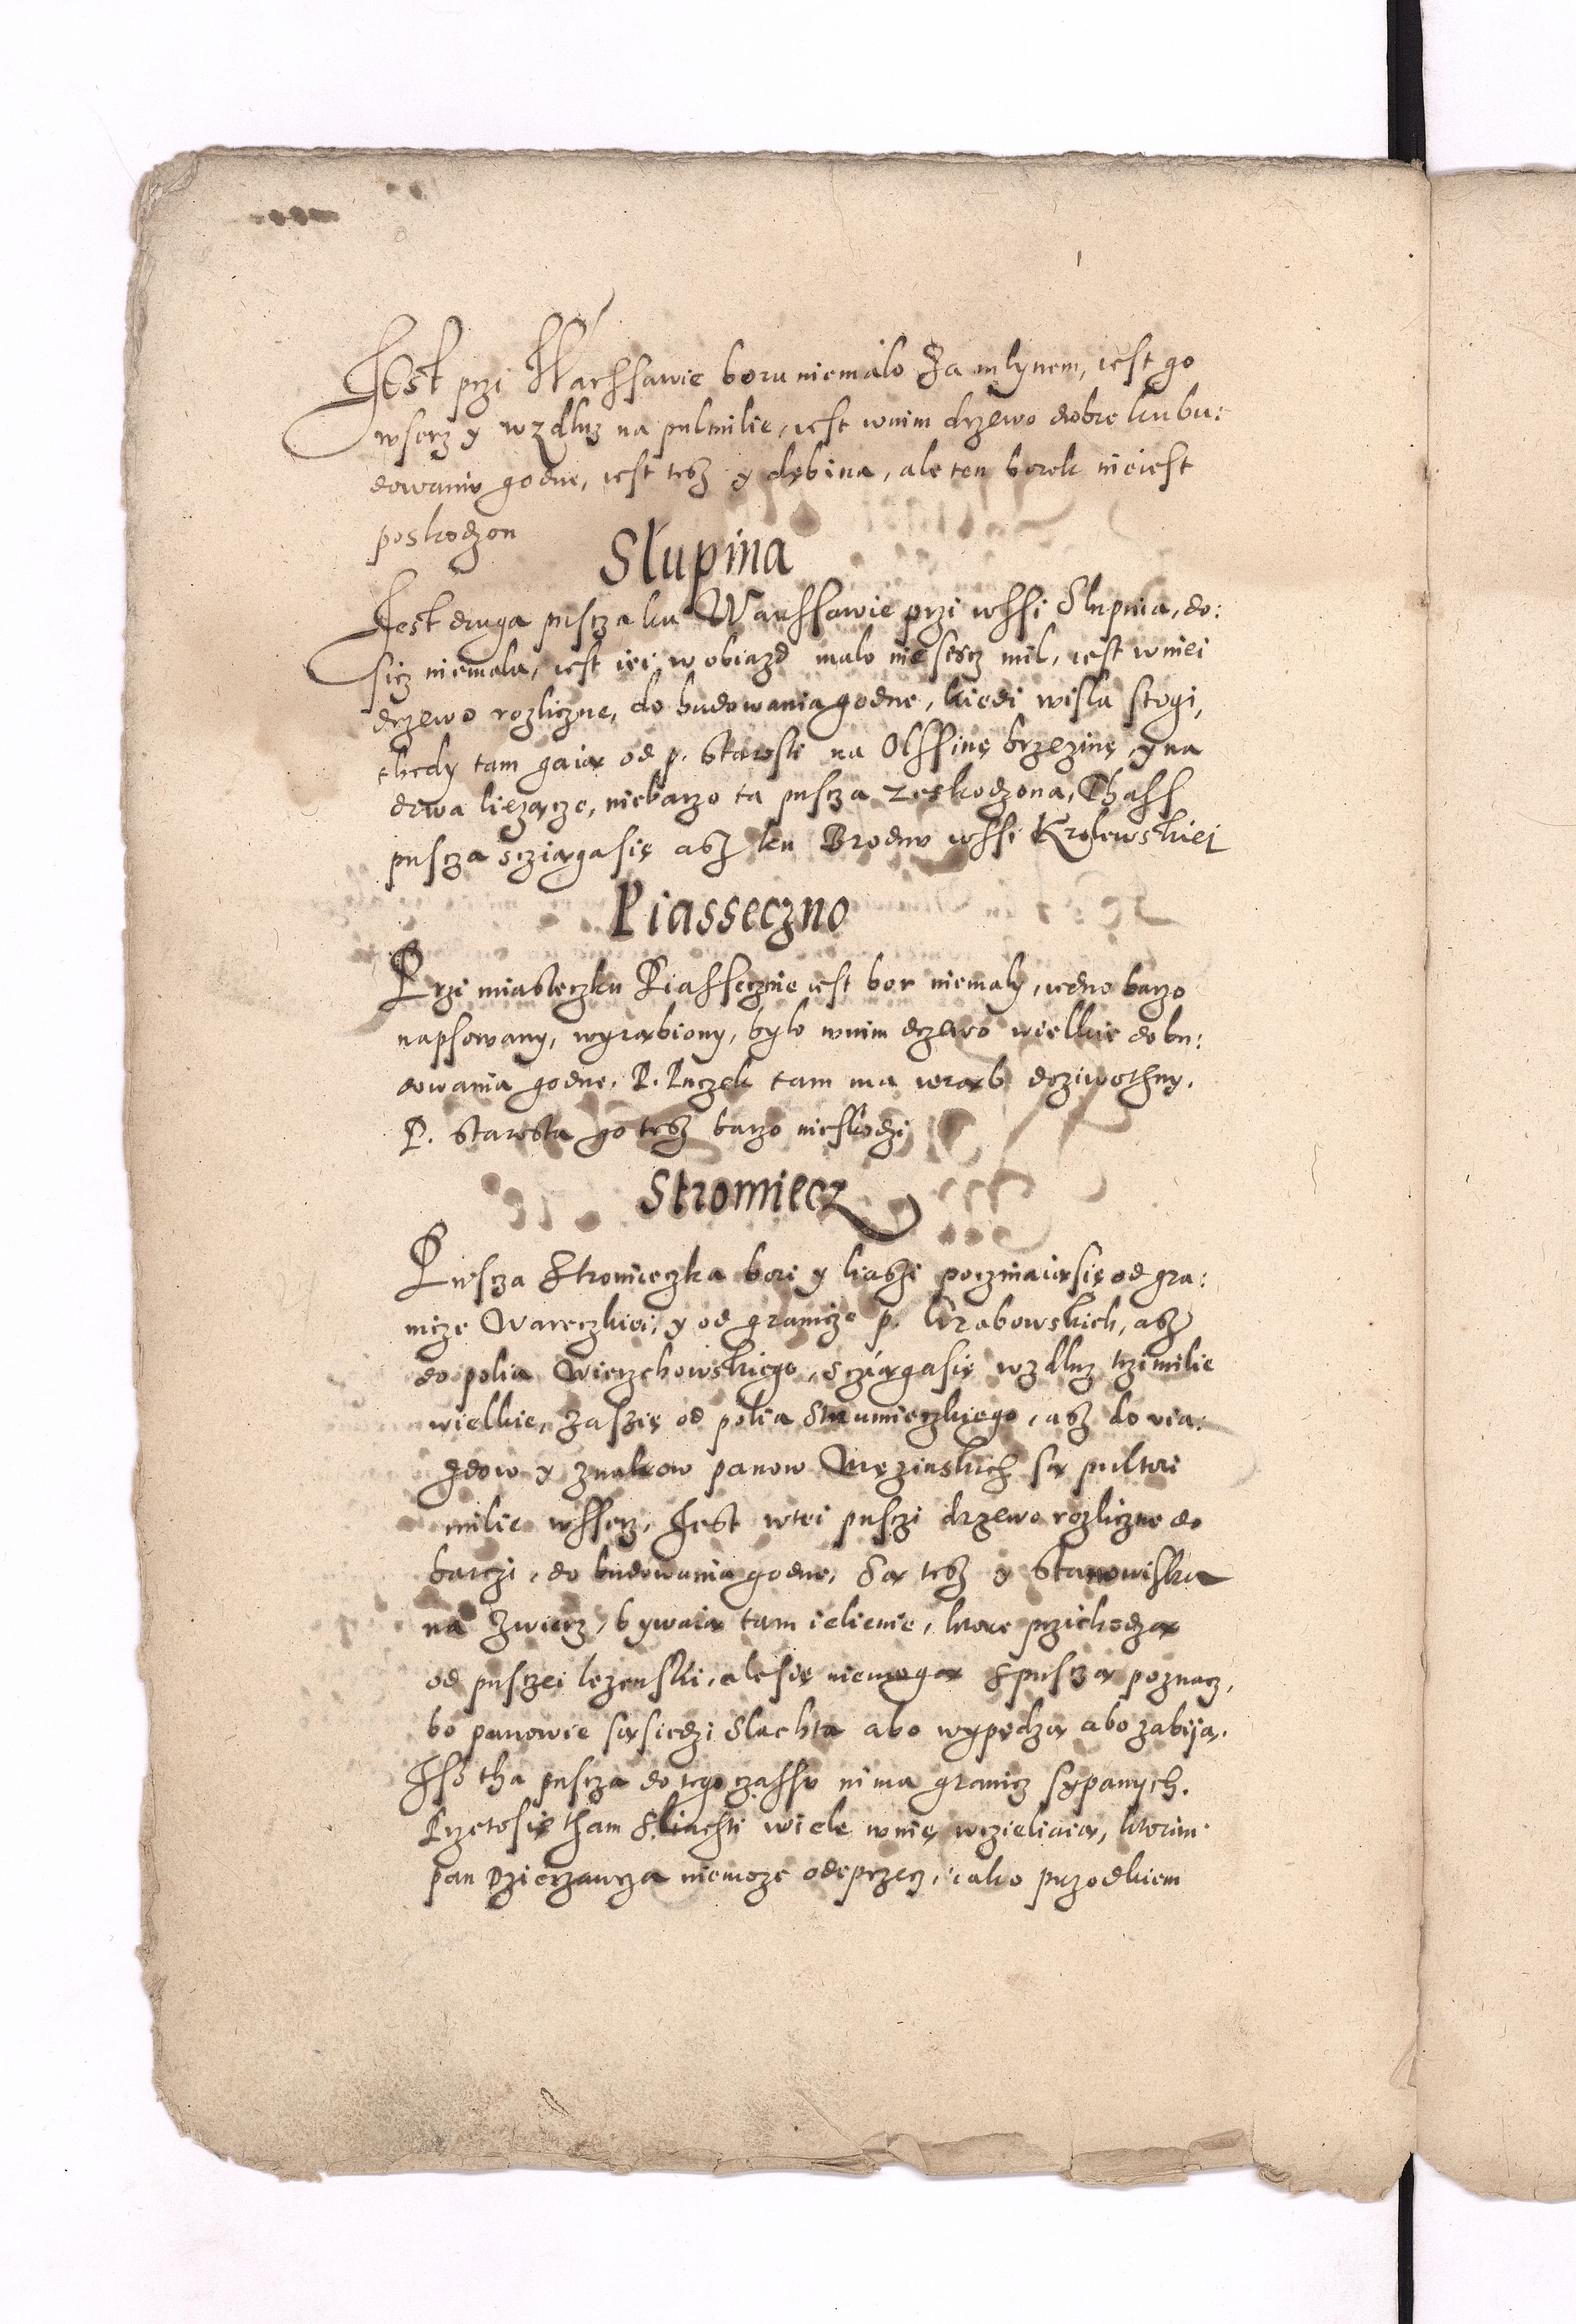 Jest przi Warssawie boru niemalo Za mlynem, iest go
wserz y wzdluz na pulmilie, iest wnim drzewo dobre ku bu:
dowaniu godne, iest tesz y dębina, ale ten borek nieiest
poskodzon
Slupina
Jest druga puscza ku Warssawie przi wssi Slupnia, do:
sicz niemala, iest iei w obiazd malo nie sescz mil, iest wniei
drzewo rozliczne, do budowania godne, kiedi wisla stogi,
thedy tam gaią od p. Starosti na Olssinę brzezinę y na
drwa liezącze, niebarzo ta puscza zeskodzona, Thass
puscza sciągasię asz ku Brodnu wssi Krolewskiei
Piasseczno
Przi miasteczku Piassecznie iest bor niemaly, iedno barzo
napsowany, wyrąbiony, bylo wnim drzewo wielkie do bu:
dowania godne, P. Puczek tam ma wrąb doziwothny.
P. Starosta go tesz barzo nieskodzi
Stromiecz
Puscza Stromieczka bori y liassi poczinaiąsię od gra:
nicze Wareczkiei, y od granicze p. Grabowskich, asz
do polia Wierzchowskiego, Scziągasię wzdluz trzimilie
wielkie, zaszię od polia Strumieczkiego, asz do via:
zdow y znakow panow Męzinskich są pultori
milie wsserz, Jest wtei pusczi drzewo rozliczne do
barczi, do budowania godne, Są tesz y Stanowiska
na zwierz, bywaią tam ielienie, ktore przichodzą
od pusczei lezenski, alesię niemogą spusczą poznacz,
bo panowie sąsiedzi Slachta abo wypędzą abo zabiją.
Isz tha puscza do tego czassu nima granicz sypanych.
Przetosię tham Sliachti wiele wnię wzieliaią, ktorim
pan Dzierzawcza niemoze odeprzecz, iako przodkiem